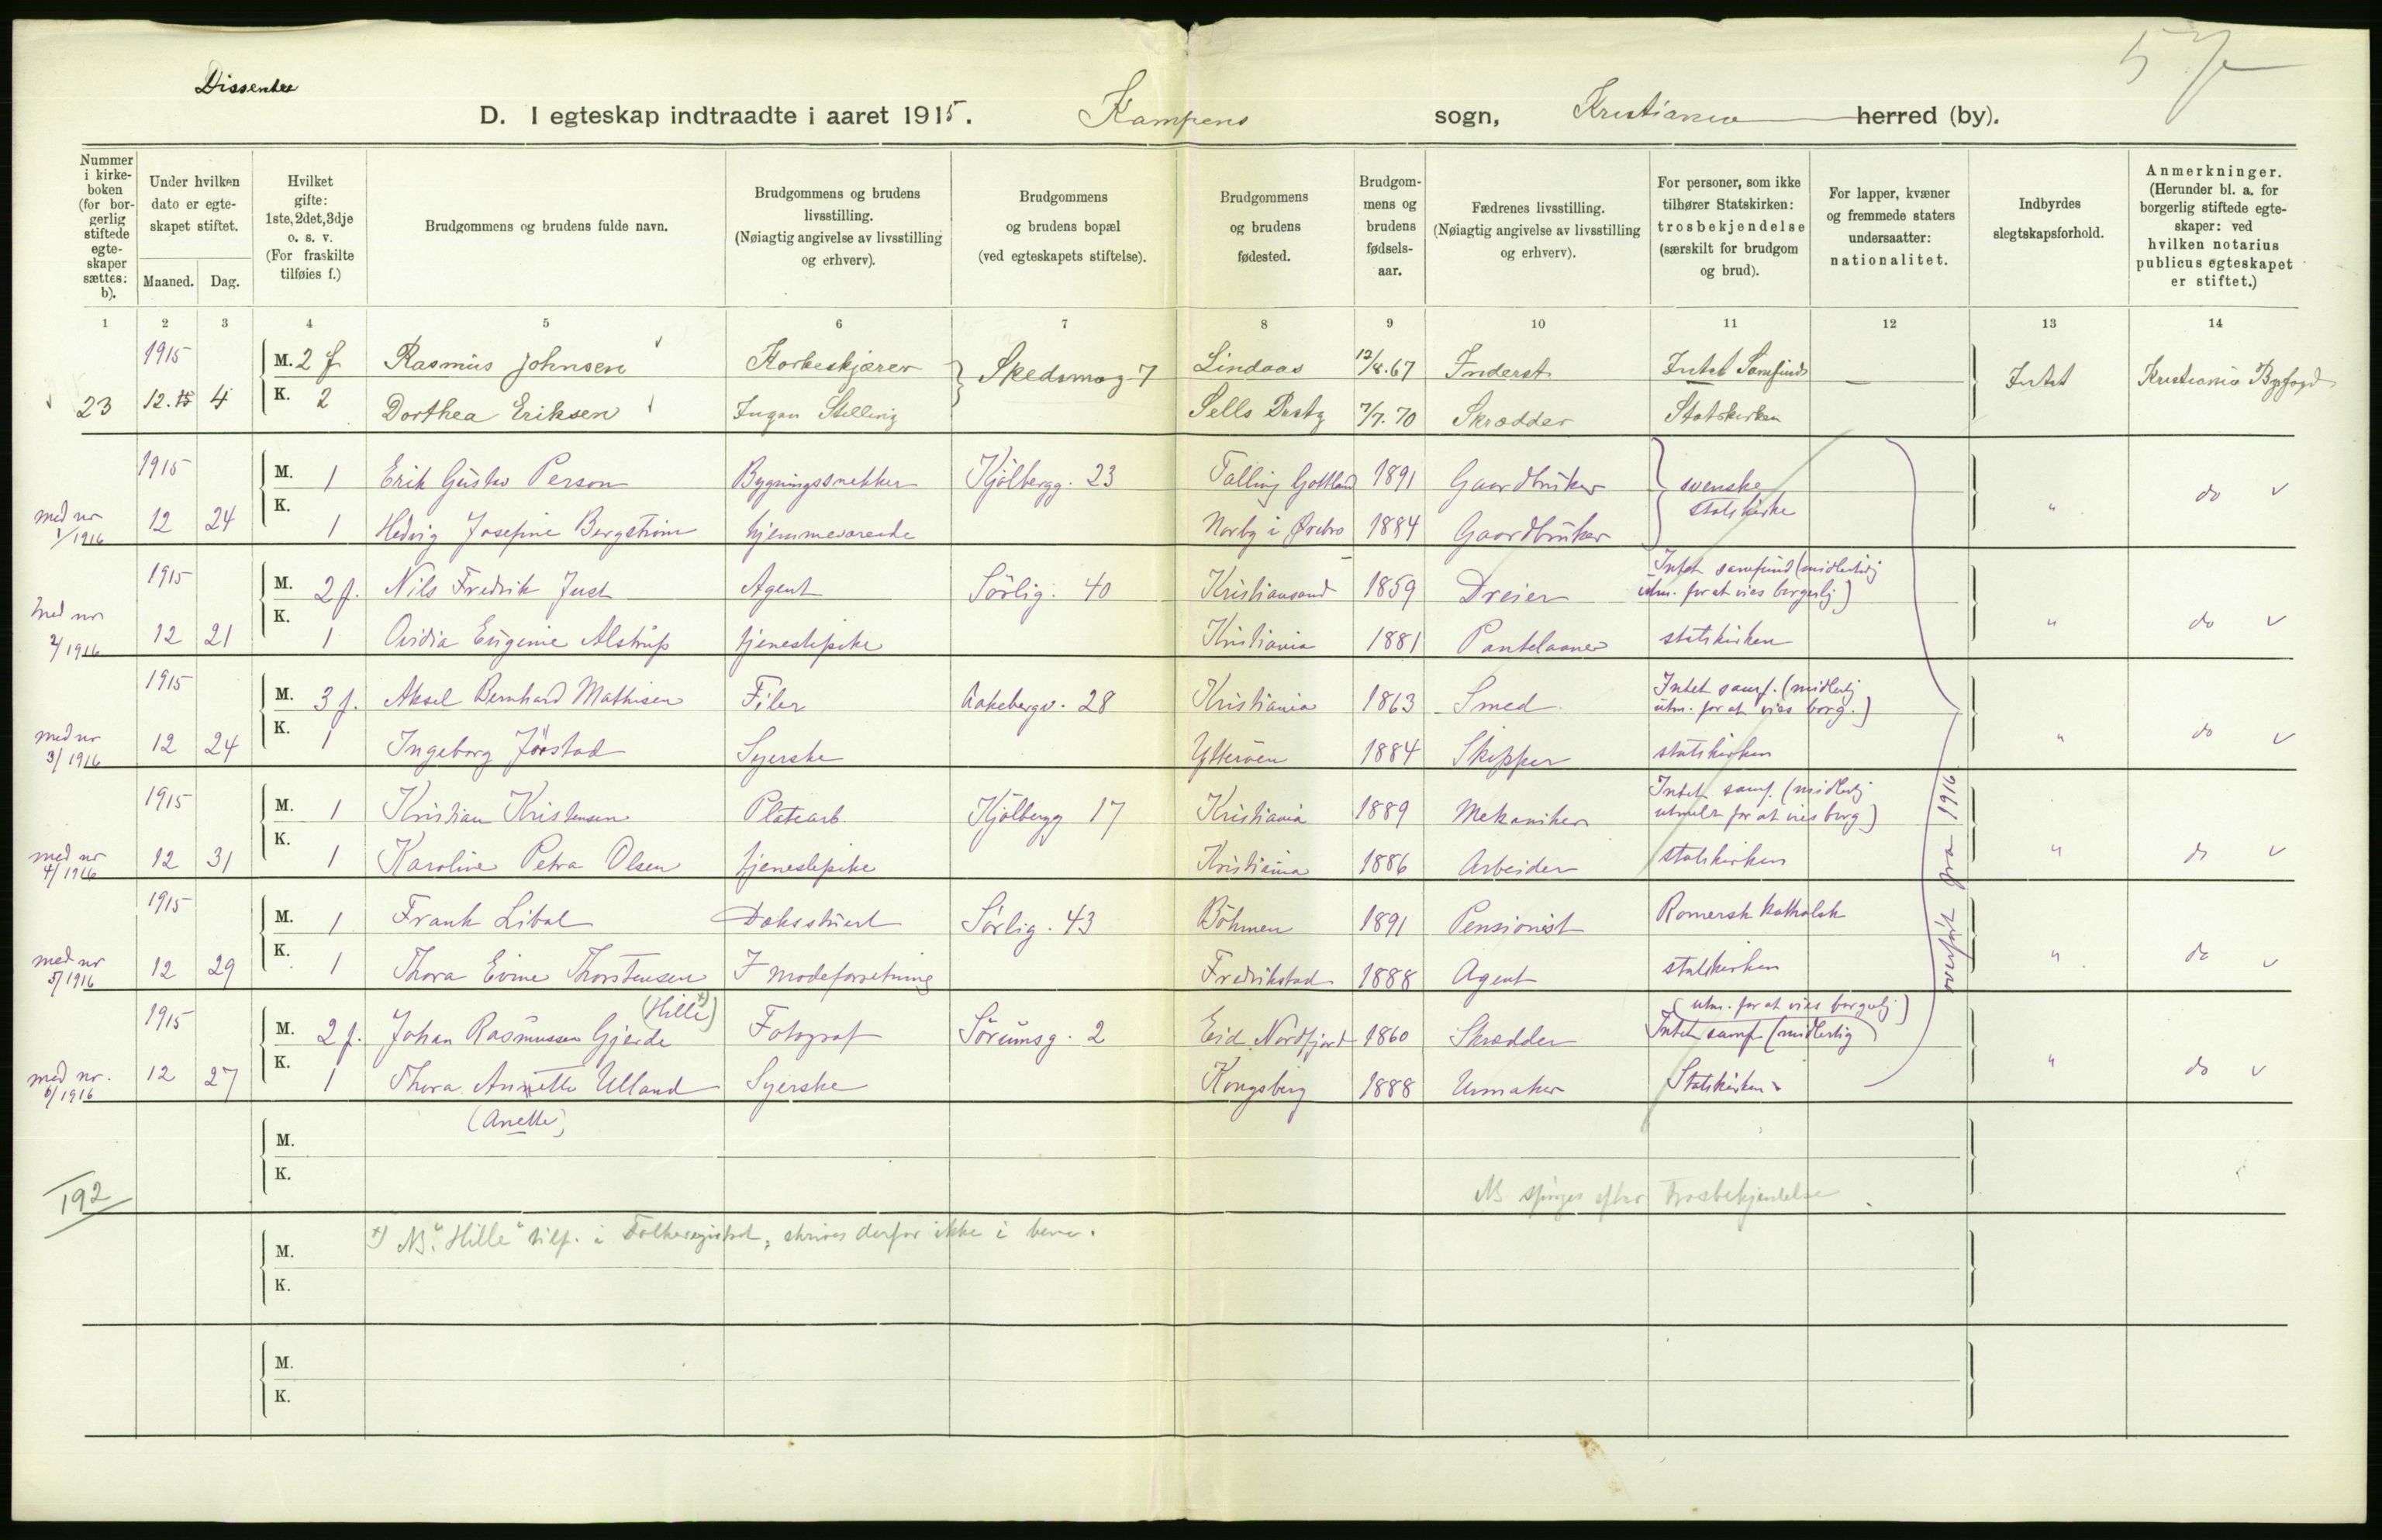 Dissenter
57
D. I egteskap indtraadte i aaret 1915. Kampens sogn, Kristiania herred (by).
Nummer i kirkeboken (for borgerlig stiftede egteskaper sættes: b).
Under hvilken dato er egteskapet stiftet.
Maaned. Dag.
Hvilket gifte: 1ste, 2det, 3dje o. s. v. (For fraskilte tilføies f.)
Brudgommens og brudens fulde navn.
Brudgommens og brudens livsstilling. (Nøiagtig angivelse av livsstilling og erhverv).
Brudgommens og brudens bopæl (ved egteskapets stiftelse).
Brudgommens og brudens fødested.
Brudgommens og brudens fødselsaar.
Fædrenes livsstilling. (Nøiagtig angivelse av livsstilling og erhverv).
For personer, som ikke tilhører Statskirken: trosbekjendelse (særskilt for brudgom og brud).
For lapper, kvæner og fremmede staters undersaatter: nationalitet.
Indbyrdes slegtskapsforhold.
Anmerkninger. (Herunder bl. a. for borgerlig stiftede egteskaper: ved hvilken notarius publicus egteskapet er stiftet.)
1 2 3 4 5 6 7 8 9 10 11 12 13 14
1915 M. 2 f Rasmus Johnsen Korkeskjærer Skedsmog 7 Lindaas 12/8.67 Inderst Intet Samfund — Intet Kristiania Byfogd
23 12. 4 K. 2 Dorthea Eriksen Ingen Stilling Sells Prstg 7/7.70 Skrædder Statskirken
1915 M. 1 Erik Gustav Person Bygningssnekker Kjølbergg. 23 Talling Gottland 1891 Gaardbruker svenske " do
med nr 1/1916 12 24 K. 1 Hedvig Josefine Bergström hjemmeværende Norby i Örebro 1884 Gaardbruker statskirke
1915 M. 2 f. Nils Fredrik Just Agent Sörlig. 40 Kristiansand 1859 Dreier Intet samfund (midlertidig utm. for at vies borgerlig) " do
med nr 2/1916 12 21 K. 1 Ovidia Eugenie Alstrup tjenestepike Kristiania 1881 Pantelaaner statskirken
1915 M. 3 f. Aksel Bernhard Mathisen Filer Aakebergv. 28 Kristiania 1863 Smed Intet samf. (midlertg utm. for at vies borg.) " do
med nr 3/1916 12 24 K. 1 Ingeborg Jöstad Syerske Ytteröen 1884 Skipper statskirken
1915 M. 1 Kristian Kristensen Platearb. Kjölbergg 17 Kristiania 1889 Mekaniker Intet samf. (midlertg utmeldt for at vies borg) " do
med nr 4/1916 12 31 K. 1 Karoline Petra Olsen tjenestepike Kristiania 1886 Arbeider statskirken
1915 M. 1 Frank Libal Sörlig. 43 Böhmen 1891 Pensionist Romersk Katholsk " do
med nr 5/1916 12 29 K. 1 Thora Evine Thorstensen I modeforretning Fredrikstad 1888 Agent statskirken
1915 M. 2 f. Johan Rasmussen Gjerde (Hille*) Fotograf Sörumsg. 2 Eid Nordfjord 1860 Skrædder Intet samf (midlertig utm. for at vies borgerlig) " do
med nr. 6/1916 12 27 K. 1 Thora Annette Ulland Syerske Kongsberg 1888 Urmaker Statskirken
(Anette)
overført fra 1916
M.
K.
192
NB spörges efter Trosbekjendelse
*) NB. "Hille" tilf. i Folkeregistret, skrives derfor ikke i
M.
K.
M.
K.